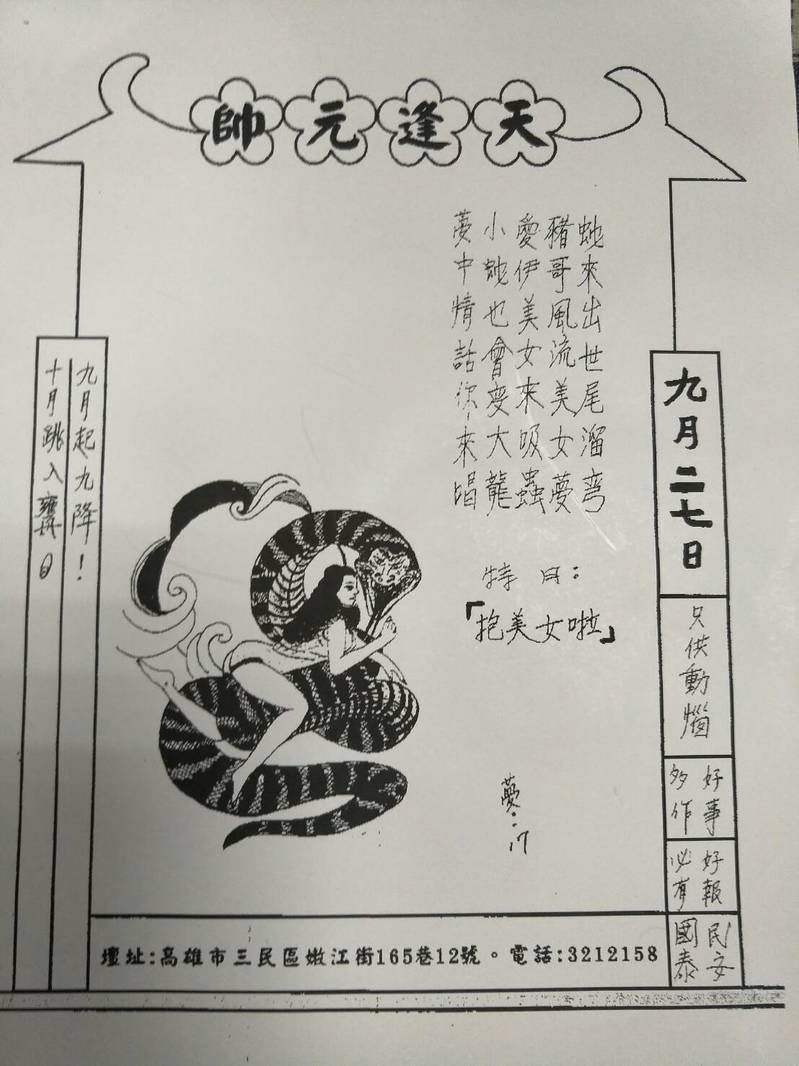 天逢元帥
蛇來出世尾溜彎
豬哥風流美女夢
愛伊美女來吸蟲
小蛇也會變大龍
夢中情話你來唱
特月:
「抱美女啦」
夢:17
九月二七日
只供動惱
好事多作
好報必有
民安國泰
九月起九降!
十月跳入甕。
壇址:高雄市三民區嫩江街165巷12號。電話:3212158